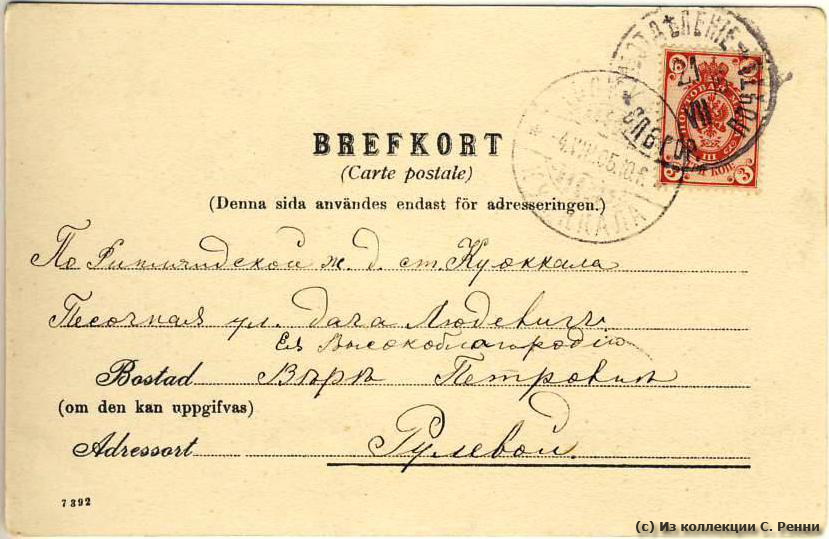 BREFKORT
(Carte postale)
(Denna sida användes endast för adresseringen.)
По Финляндской ж. д. ст. Куоккала
Песочная ул. дача Людевигъ
Ея Высокоблагородію
Bostad Вѣрѣ Петровнѣ
(om den kan uppgifvas)
Adressort Рулевой.
7392
3 3
21
VII
4.VIII.05.10
3 3
(с) Из коллекции С. Ренни